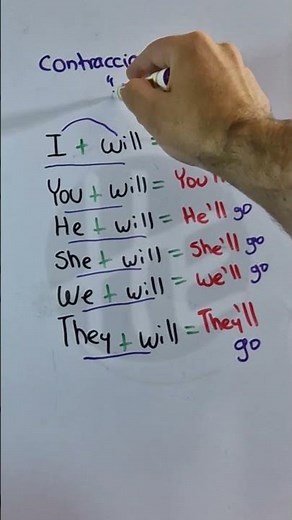 I + will =
You + will =
He + will = He'll go
She + will = She'll go
We + will = we'll go
They + will = They'll
go